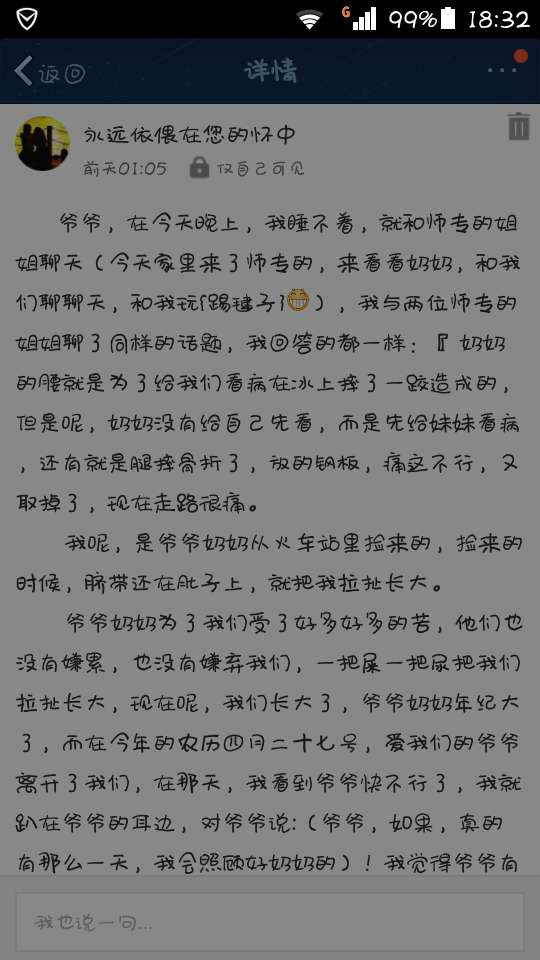 G 99% 18:32
返回 详情 ...
永远依偎在您的怀中
前天01:05 仅自己可见
爷爷，在今天晚上，我睡不着，就和师专的姐
姐聊天（今天家里来了师专的，来看看奶奶，和我
们聊聊天，和我玩{踢毽子}），我与两位师专的
姐姐聊了同样的话题，我回答的都一样：『奶奶
的腰就是为了给我们看病在冰上摔了一跤造成的，
但是呢，奶奶没有给自己先看，而是先给妹妹看病
，还有就是腿摔骨折了，放的钢板，痛这不行，又
取掉了，现在走路很痛。
我呢，是爷爷奶奶从火车站里捡来的，捡来的
时候，脐带还在肚子上，就把我拉扯长大。
爷爷奶奶为了我们受了好多好多的苦，他们也
没有嫌累，也没有嫌弃我们，一把屎一把尿把我们
拉扯长大，现在呢，我们长大了，爷爷奶奶年纪大
了，而在今年的农历四月二十七号，爱我们的爷爷
离开了我们，在那天，我看到爷爷快不行了，我就
趴在爷爷的耳边，对爷爷说:（爷爷，如果，真的
有那么一天，我会照顾好奶奶的）！我觉得爷爷有
我也说一句...